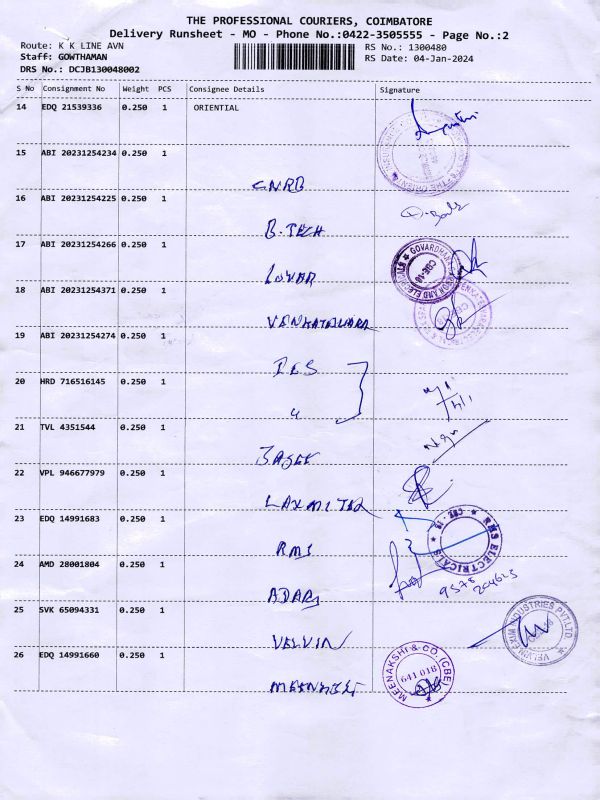 THE PROFESSIONAL COURIERS, COIMBATORE
Delivery Runsheet - MO - Phone No.:0422-3505555 - Page No.:2
Route: K K LINE AVN
RS No.: 1300480
Staff: GOWTHAMAN
RS Date: 04-Jan-2024
DRS No.: DCJB130048002
S No Consignment No Weight PCS Consignee Details Signature
14 EDQ 21539336 0.250 1 ORIENTIAL
15 ABI 20231254234 0.250 1
CNRB
16 ABI 20231254225 0.250 1
B.TECH
17 ABI 20231254266 0.250 1
GOVARDHAN
CBE-18
18 ABI 20231254371 0.250 1
VENKATESWARA
19 ABI 20231254274 0.250 1
20 HRD 716516145 0.250 1
21 TVL 4351544 0.250 1
22 VPL 946677979 0.250 1
LAXMI TEX
23 EDQ 14991683 0.250 1
RMS
RMS ELECTRICALS
24 AMD 28001804 0.250 1
ADARS
9578
25 SVK 65094331 0.250 1
VELVIN
INDUSTRIES PVT.LTD.
26 EDQ 14991660 0.250 1
MEENAKSHI
MEENAKSHI & CO.(CBE)
641 018